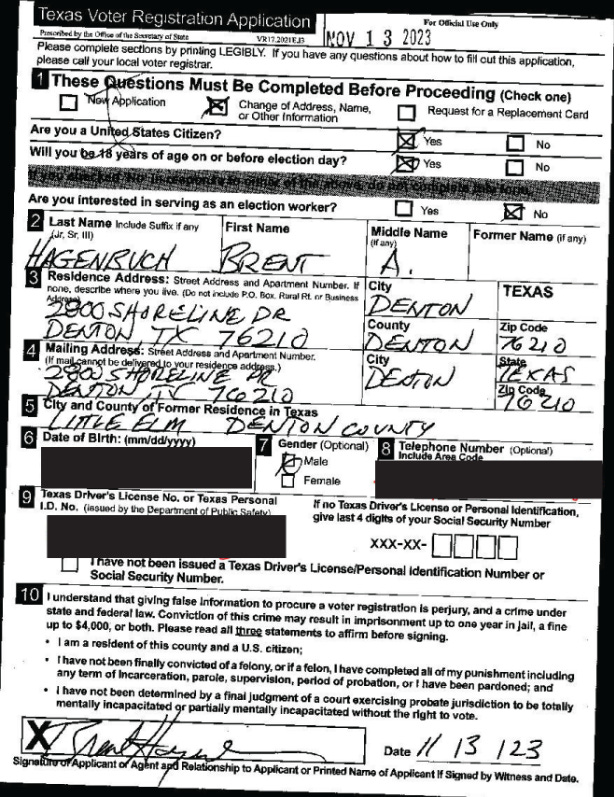 Texas Voter Registration Application
For Official Use Only
Prescribed by the Office of the Secretary of State VR17.2021E.I3
NOV 13 2023
Please complete sections by printing LEGIBLY. If you have any questions about how to fill out this application,
please call your local voter registrar.
1 These Questions Must Be Completed Before Proceeding (Check one)
New Application
Change of Address, Name,
or Other Information
Request for a Replacement Card
Are you a United States Citizen? Yes No
Will you be 18 years of age on or before election day? Yes No
If you checked 'No' in response to either of the above, do not complete this form.
Are you interested in serving as an election worker? Yes No
2 Last Name Include Suffix if any
(Jr, Sr, III)
First Name
Middle Name
(if any)
Former Name (if any)
HAGENBUCH BRENT A.
3 Residence Address: Street Address and Apartment Number. If
none, describe where you live. (Do not include P.O. Box, Rural Rt. or Business
Address)
2800 SHORELINE DR
DENTON TX 76210
City
DENTON
TEXAS
County
DENTON
Zip Code
76210
4 Mailing Address: Street Address and Apartment Number.
(If mail cannot be delivered to your residence address.)
2800 SHORELINE DR
DENTON, TX 76210
City
DENTON
State
TEXAS
Zip Code
76210
5 City and County of Former Residence in Texas
LITTLE ELM DENTON COUNTY
6 Date of Birth: (mm/dd/yyyy)
7 Gender (Optional)
Male
Female
8 Telephone Number (Optional)
Include Area Code
9 Texas Driver's License No. or Texas Personal
I.D. No. (Issued by the Department of Public Safety)
If no Texas Driver's License or Personal Identification,
give last 4 digits of your Social Security Number
XXX-XX-
I have not been issued a Texas Driver's License/Personal Identification Number or
Social Security Number.
10 I understand that giving false information to procure a voter registration is perjury, and a crime under
state and federal law. Conviction of this crime may result in imprisonment up to one year in jail, a fine
up to $4,000, or both. Please read all three statements to affirm before signing.
• I am a resident of this county and a U.S. citizen;
• I have not been finally convicted of a felony, or if a felon, I have completed all of my punishment including
any term of incarceration, parole, supervision, period of probation, or I have been pardoned; and
• I have not been determined by a final judgment of a court exercising probate jurisdiction to be totally
mentally incapacitated or partially mentally incapacitated without the right to vote.
X Brent Hagenbuch
Date 11 13 123
Signature of Applicant or Agent and Relationship to Applicant or Printed Name of Applicant if Signed by Witness and Date.